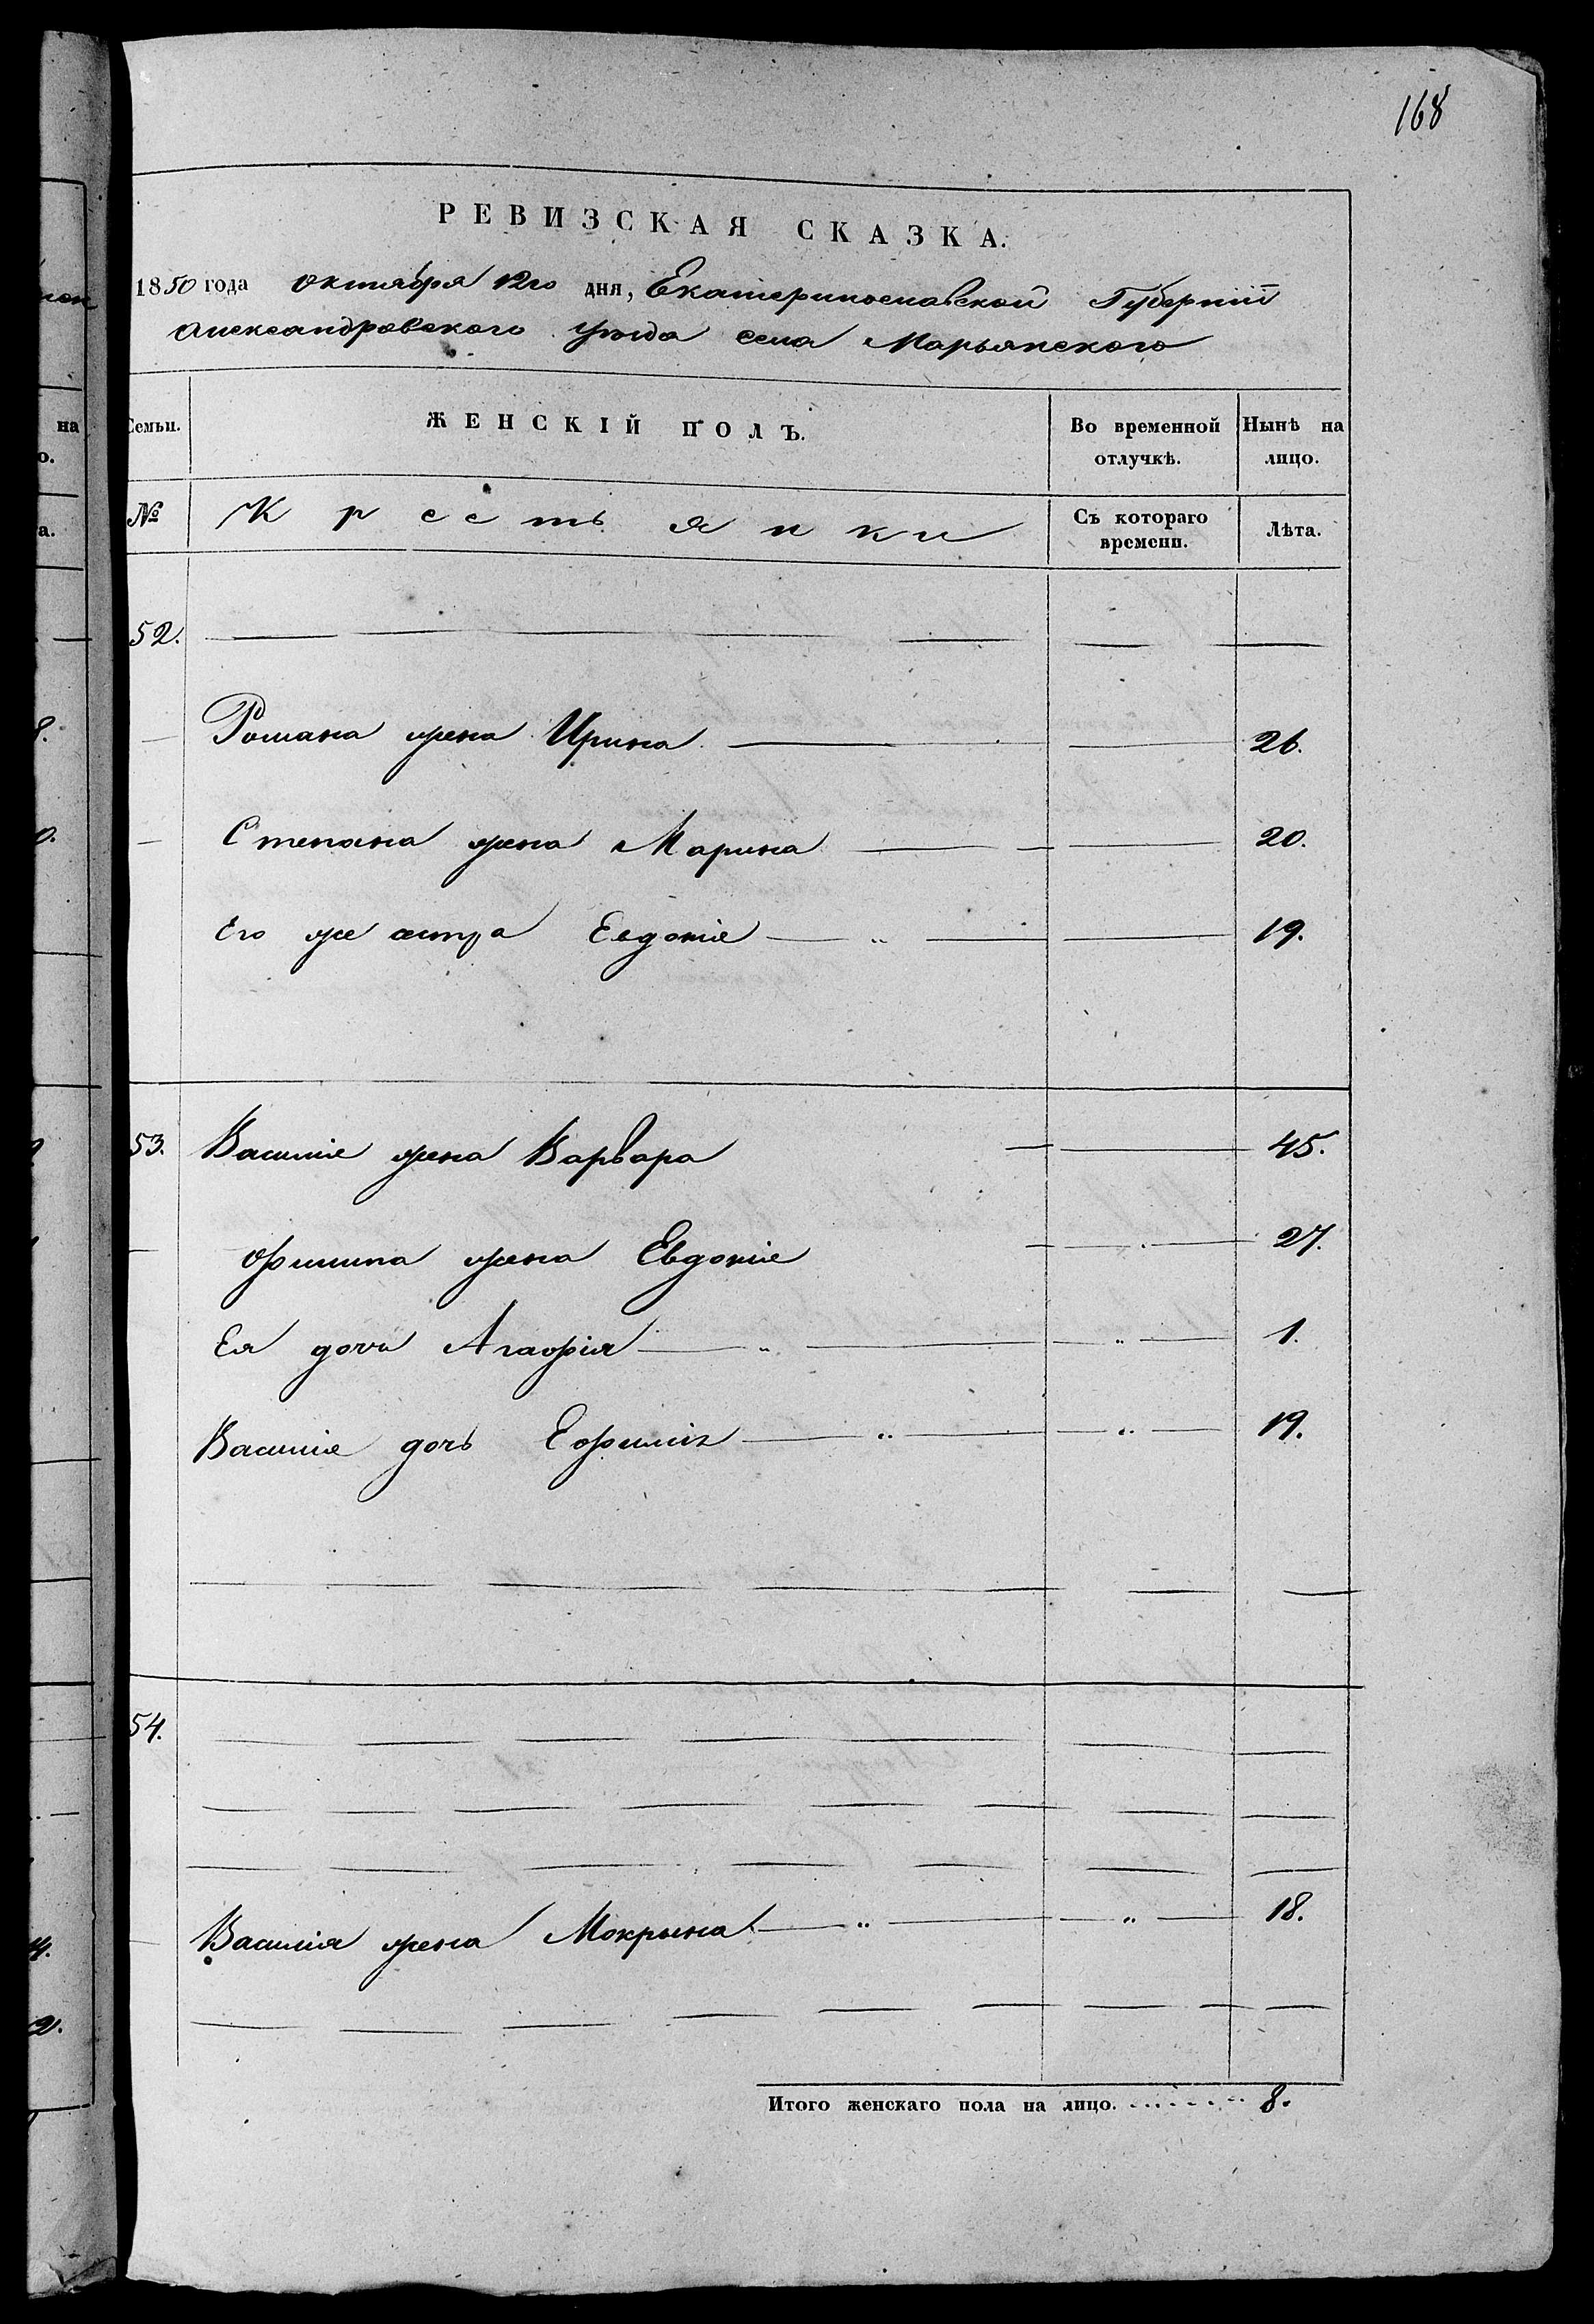 168
РЕВИЗСКАЯ СКАЗКА.
1850 года октября 12го дня, Екатеринославской Губернiи
Александровского уѣзда села Марьянского
Семьи. ЖЕНСКІЙ ПОЛЪ. Во временной отлучкѣ. Нынѣ на лицо.
№ Крестьянки Съ котораго времени. Лѣта.
52.
Романа жена Ирина 26.
Степана жена Марина 20.
Его же сестра Евдокiя 19.
53. Василiя жена Варвара 45.
Филипа жена Евдокiя 27.
Ея дочь Агафiя 1.
Василiя дочь Ефимiя 19.
54.
Василiя жена Мокрына 18.
Итого женскаго пола на лицо. 8.
на
о.
а.